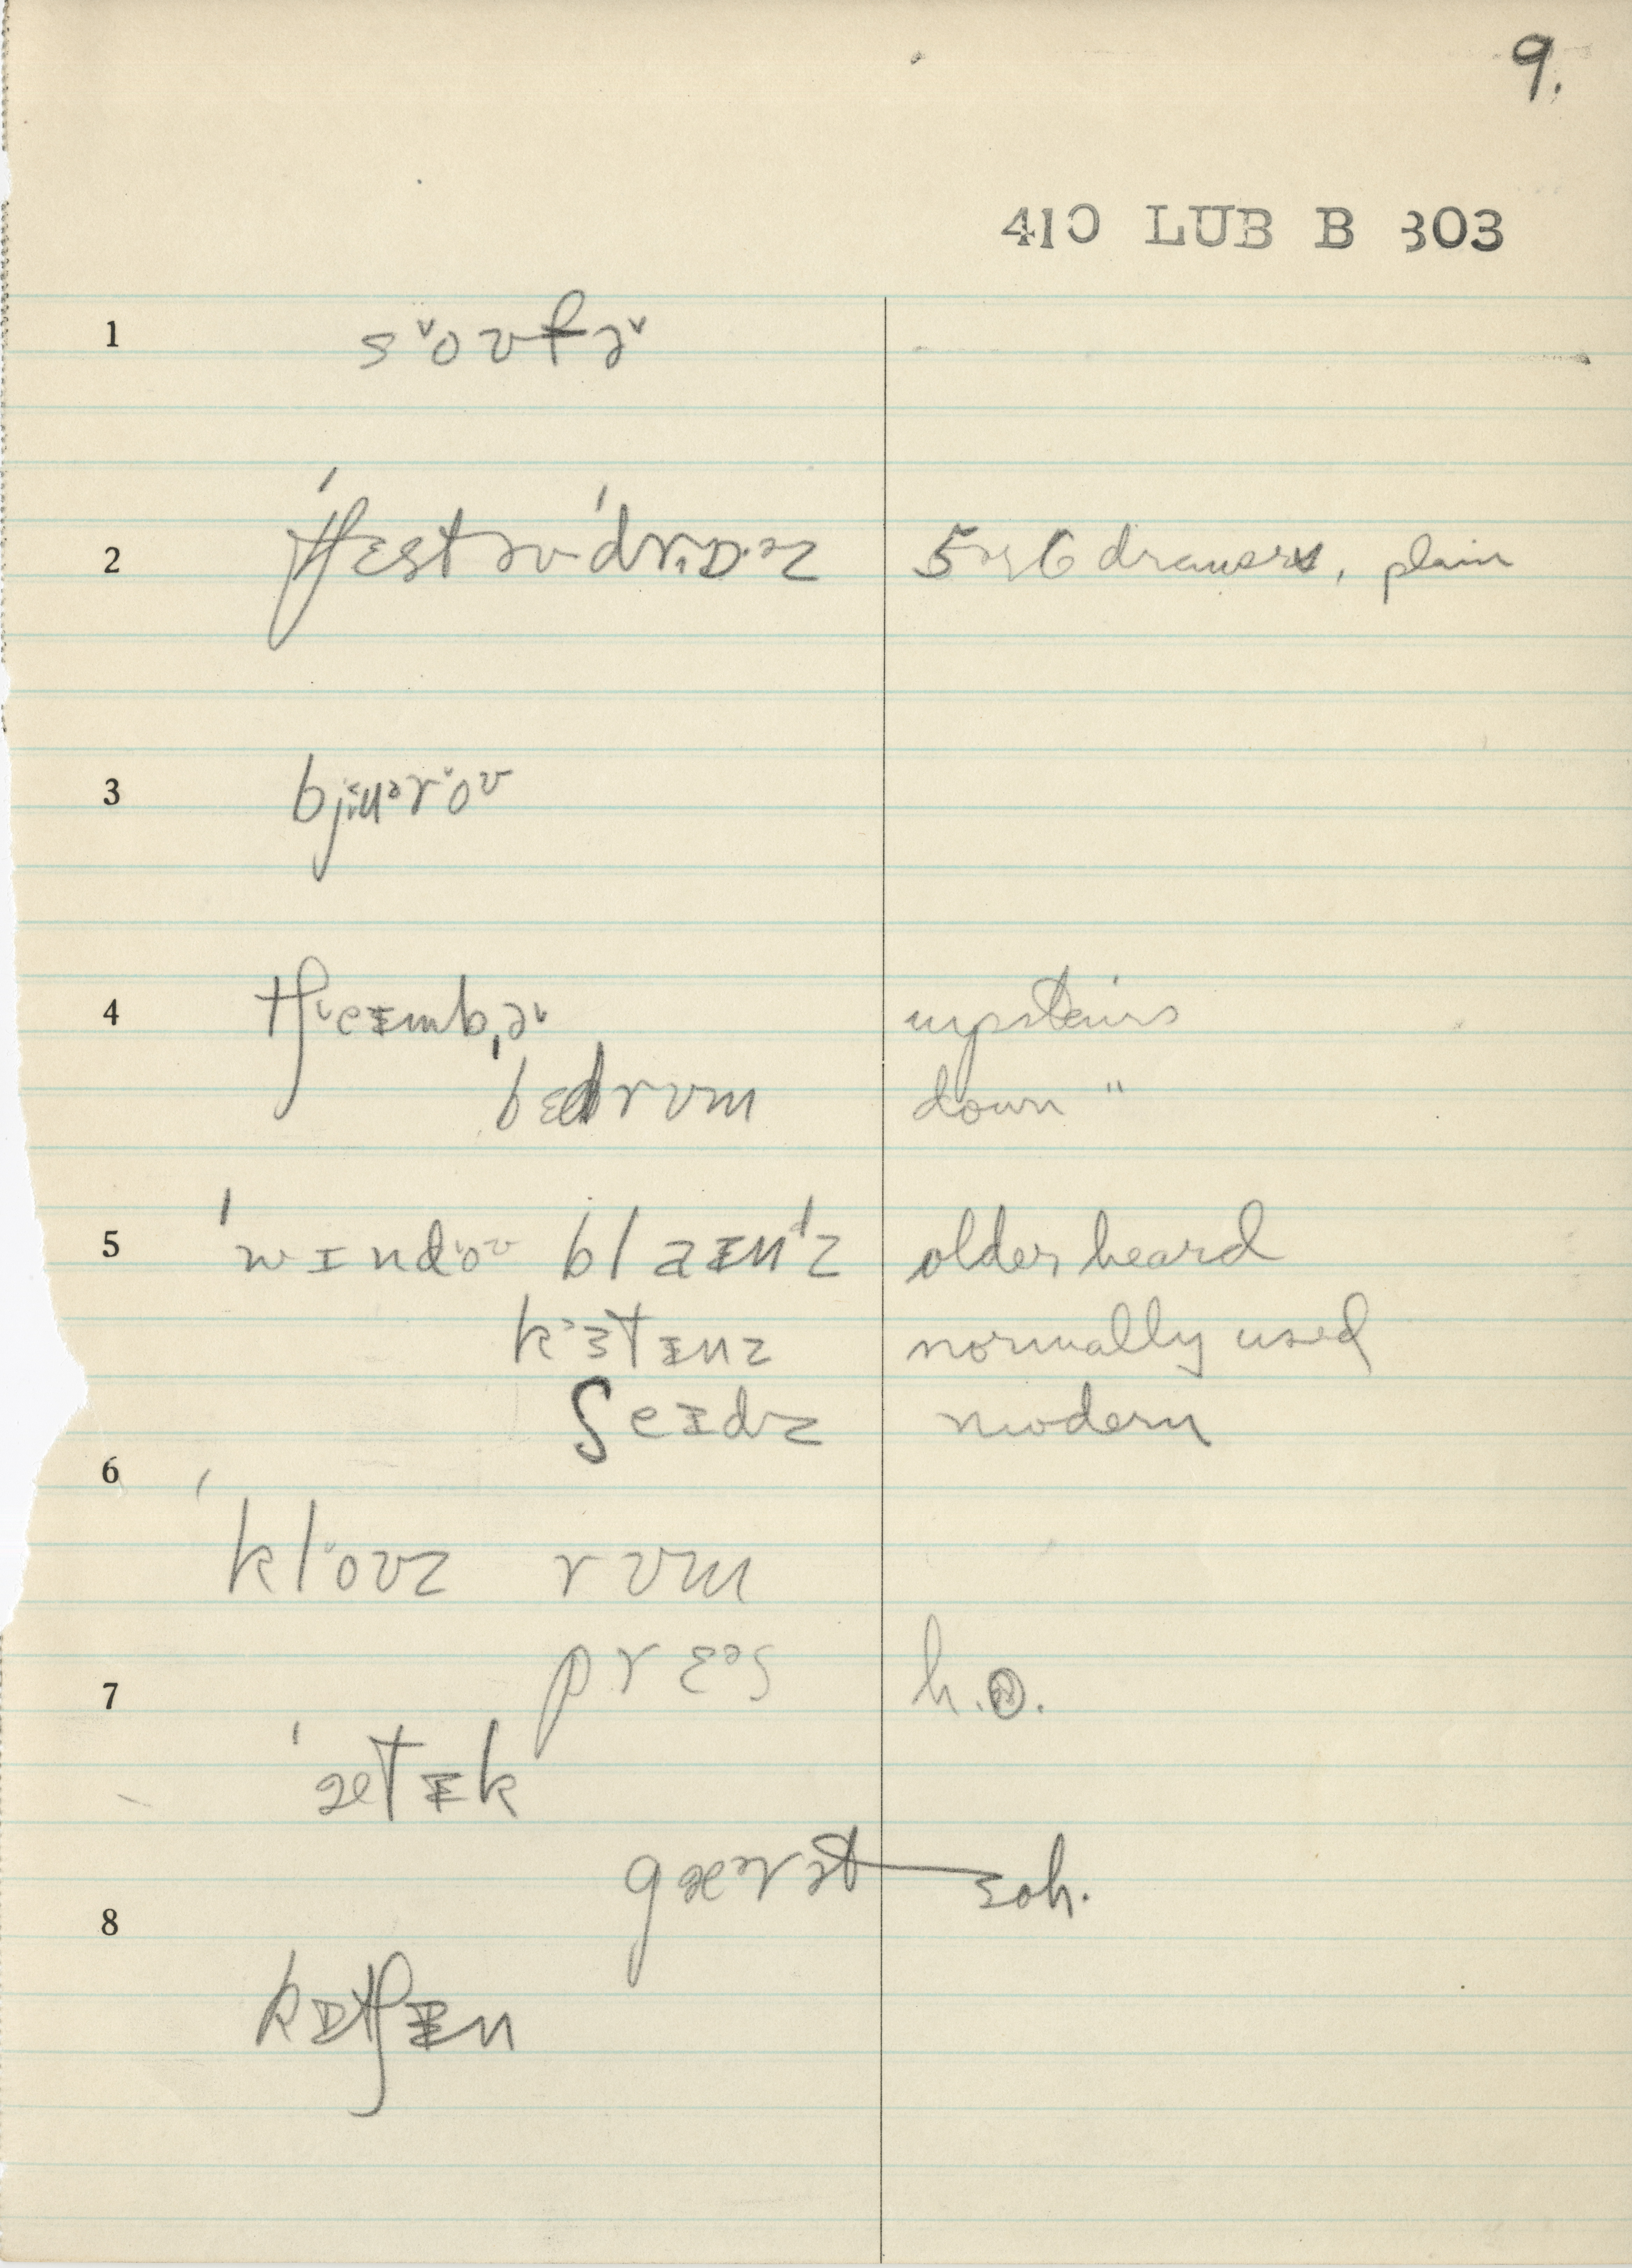 9.
410 LUB B 303
1 s˅oʊfə˅
2 ˈtʃɛst əv ˈdrɒ·əz 5 or 6 drawers, plain
3 bjuəroʊ
4 tʃeɪmbə upstairs
bɛdrʊm down "
5 ˈwɪndoʊ blaɪnᵈz older heard
kɜtɪnz normally used
ʃeɪdz modern
6
ˈkloʊz rʊm
prɛᵊs h.O.
7
ˈætɪk
gærət Eoh.
8
kɪtʃɪn